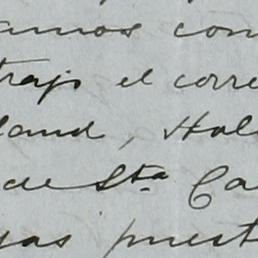 amos con
trajo el corre
land, Hol
de Sta Ca
yas puest